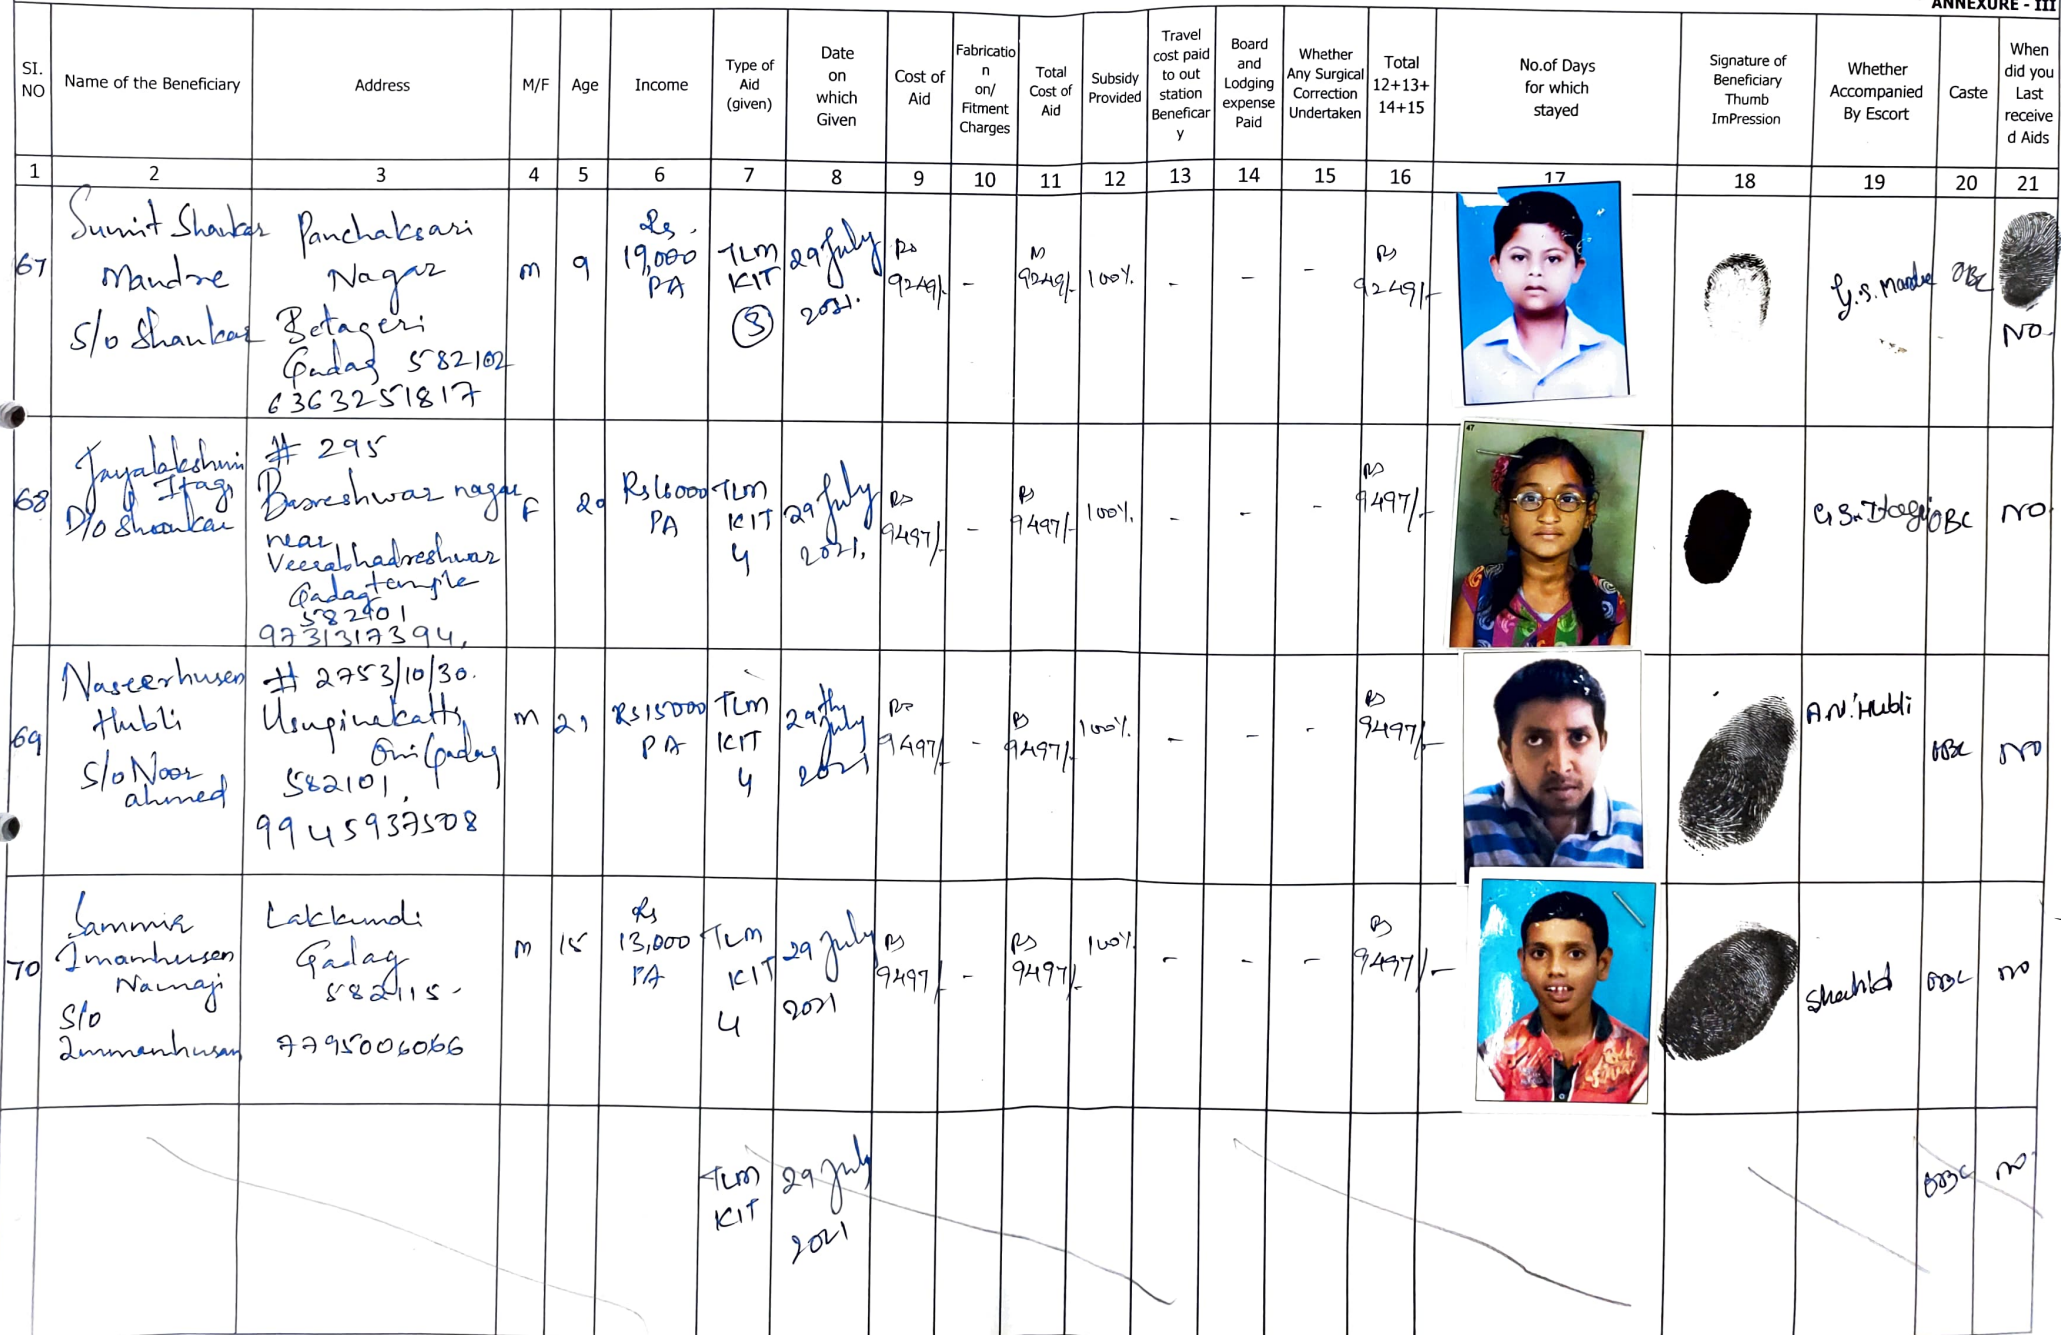 ANNEXURE - III
SI. NO
Name of the Beneficiary
Address
M/F
Age
Income
Type of Aid (given)
Date on which Given
Cost of Aid
Fabricatio n on/ Fitment Charges
Total Cost of Aid
Subsidy Provided
Travel cost paid to out station Beneficar y
Board and Lodging expense Paid
Whether Any Surgical Correction Undertaken
Total 12+13+ 14+15
No.of Days for which stayed
Signature of Beneficiary Thumb ImPression
Whether Accompanied By Escort
Caste
When did you Last receive d Aids
1 2 3 4 5 6 7 8 9 10 11 12 13 14 15 16 17 18 19 20 21
67
Sumit Shankar
Mandre
S/o Shankar
Panchaksari
Nagar
Betageri
Gadag 582102
6363251817
m
9
Rs.
19,000
PA
TLM
KIT
3
29 July
2021.
Rs
9249/-
-
Rs
9249/-
100%.
-
-
-
Rs
9249/-
G.S. Mandre
OBC
NO.
68
Jayalakshmi
Itagi
D/o Shankar
# 295
Basreshwar nagar
near
Veerabhadreshwar
Gadag temple
582101
9731317394,
F
20
Rs 16000
PA
TLM
KIT
4
29 July
2021,
Rs
9497/-
-
Rs
9497/-
100%.
-
-
-
Rs
9497/-
47
G.S. Itagi
OBC
NO
69
Naseerhusen
Hubli
S/o Noor
ahmed
# 2753/10/30.
Usuginakatti
Oni Gadag
582101,
9945937508
m
21
Rs 15000
PA
TLM
KIT
4
29th
July
2021
Rs
9497/-
-
Rs
9497/-
100%.
-
-
-
Rs
9497/-
A.N. Hubli
OBC
NO
70
Sammir
Imamhusen
Namaji
S/o
Immamhusan
Lakkundi
Gadag
582115-
7795006066
m
15
Rs
13,000
PA
TLM
KIT
4
29 July
2021
Rs
9497/-
-
Rs
9497/-
100%.
-
-
-
Rs
9497/-
OBC
NO
TLM
KIT
29 July
2021
OBC
NO